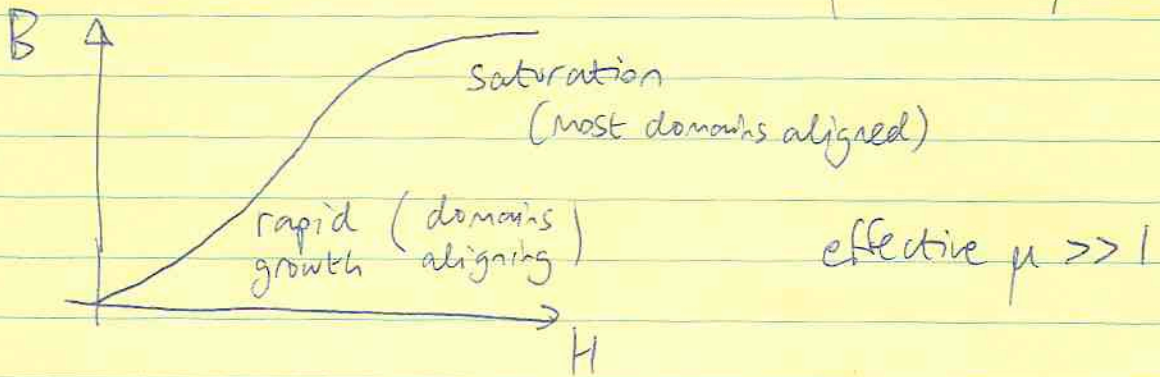 B
saturation
(most domains aligned)
rapid (domains
growth aligning)
effective μ >> 1
H